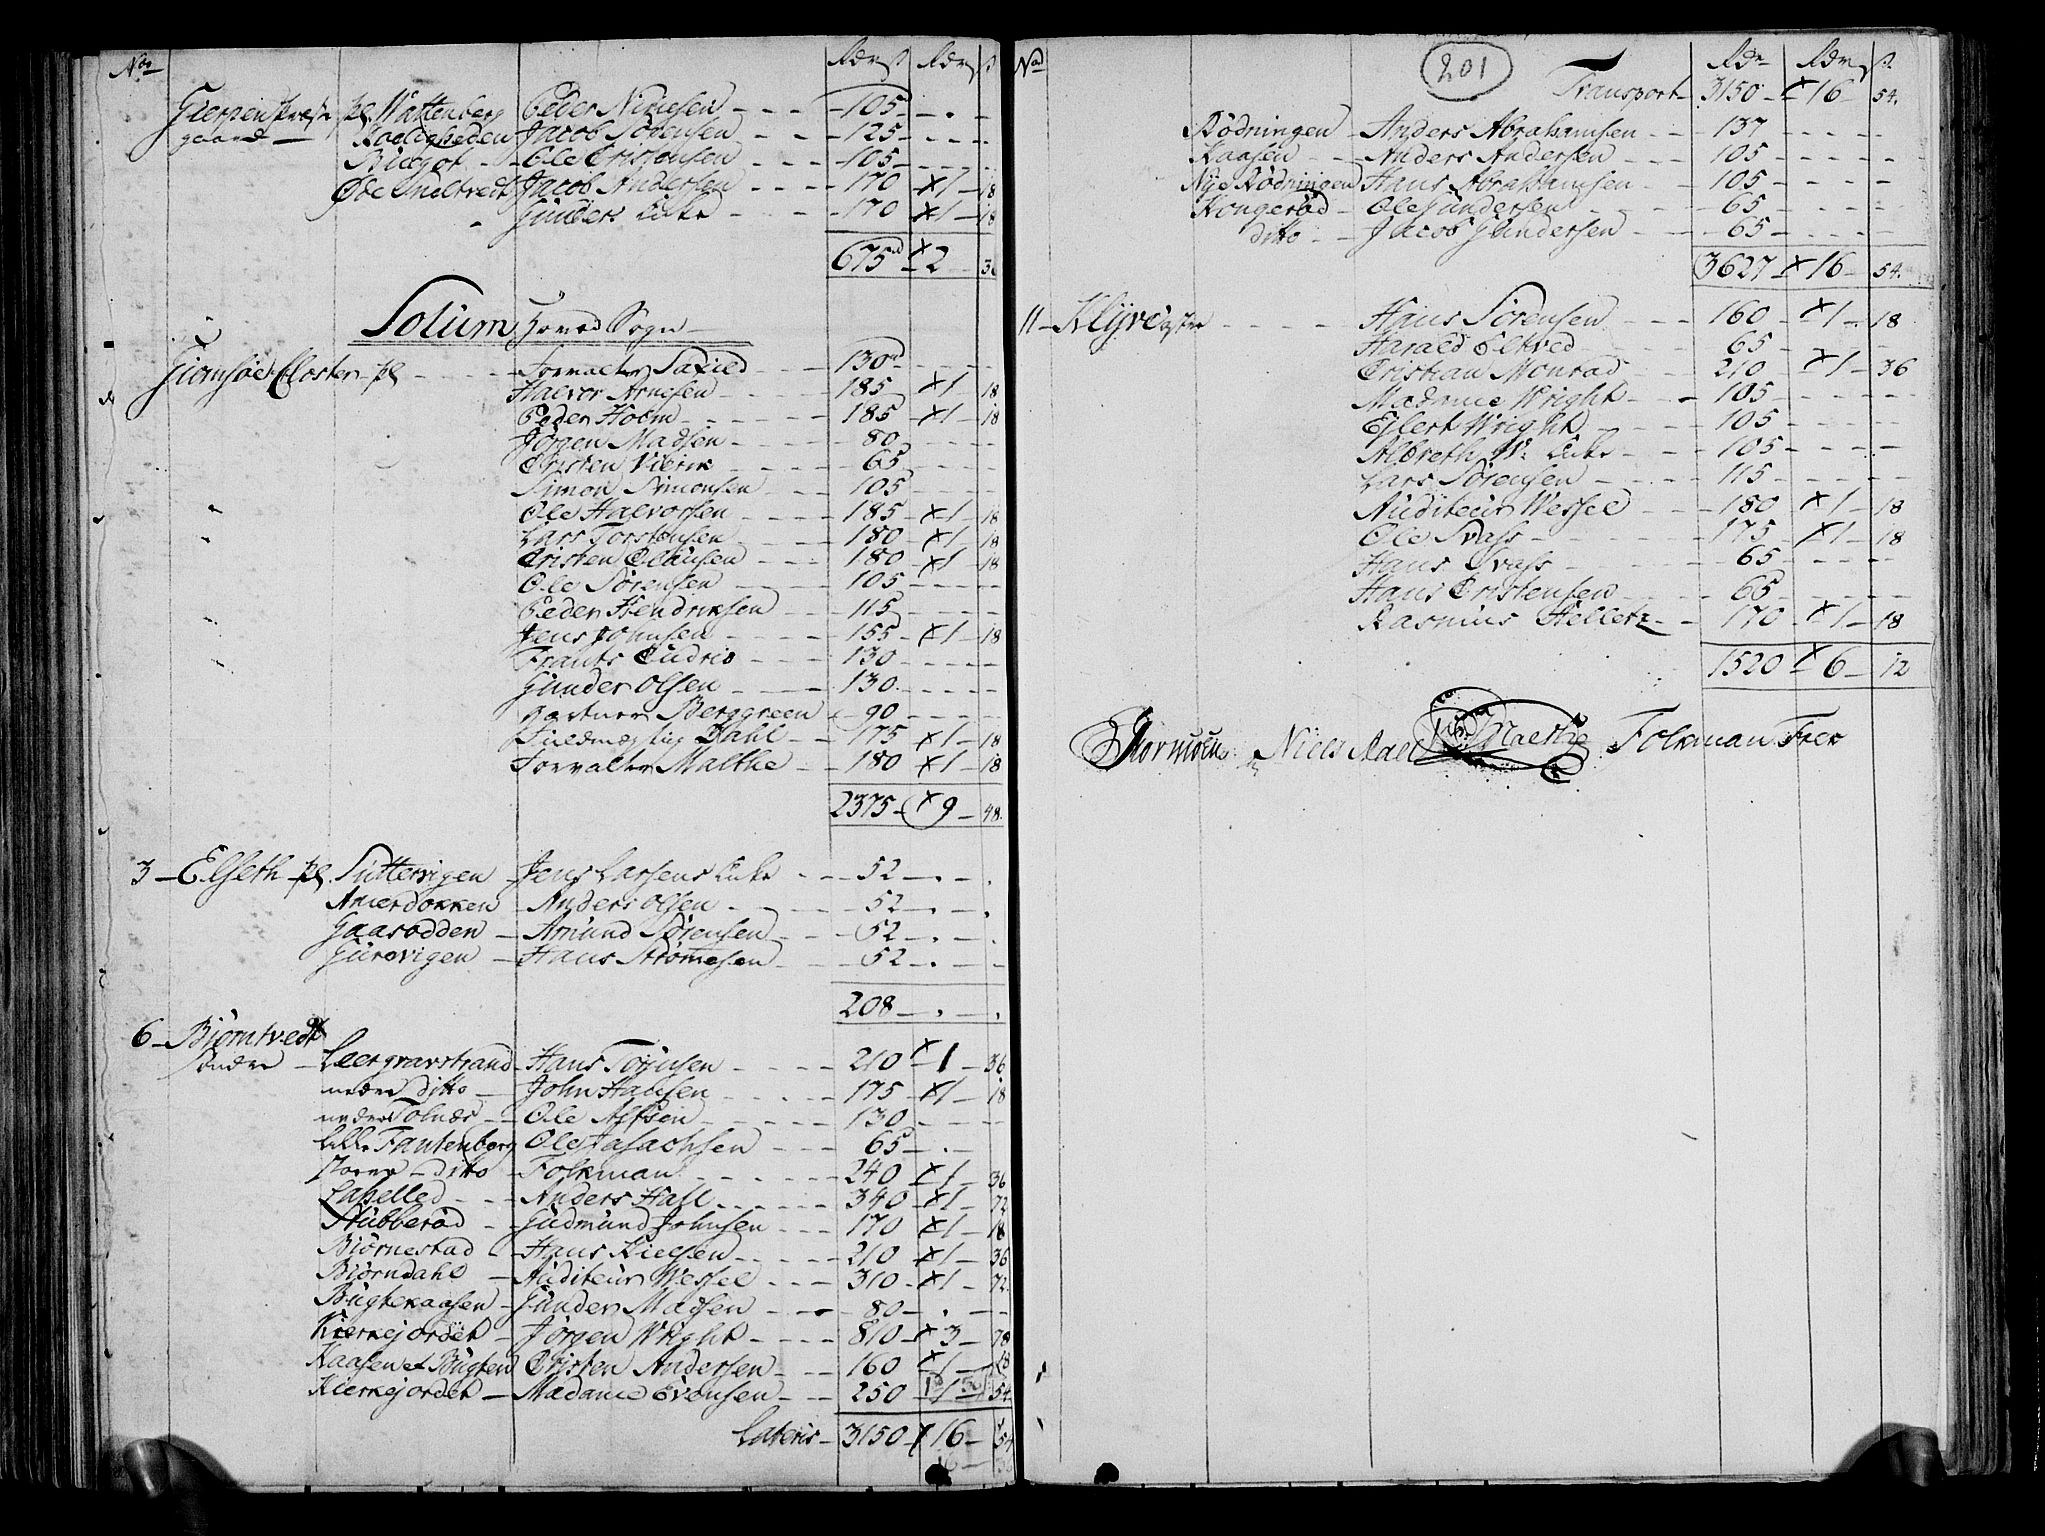 No Rdr ß Rdr ß
Gierpen Præste pl. Wattenberg Peder Nimesen 105
gaard Roeligheden Jacob Sørensen 125
Biugot Ole Cristensen 105
Øde Meltvedt Jacob Andersen 170 x1 18
Gunders Enke 170 x1 18
675rd x2 36
Solum Hoved Sogn
Giemsøe Closter pl Forvalter Saxild 130rd
Halvor Arnesen 185 x1 18
Peder Holm 185 x1 18
Jørgen Madsen 80
Cristen Vibrik 65
Simon Simonsen 105
Ole Halvorsen 185 x1 18
Lars Torstensen 180 x1 18
Cristen Clausen 180 x1 18
Ole Sørensen 105
Peder Hendriksen 115
Jens Johnsen 155 x1 18
Frants Cudrio 130
Gunder Olsen 130
Gartner Berggreen 90
Fuldmægtig Dahl 175 x1 18
Forvalter Malthe 180 x1 18
2375 x9 48.
3 Elseth pl. Suttervigen Jens Larsens Enke 52
Amerdokken Anders Olsen 52
Gaasodden Amund Sørensen 52
Gurovigen Hans Strømesen 52
208
6 Bjørntvedt
Søndre Leergravstrand Hans Torjusen 210 x1 36
nedre Ditto John Hansen 175 x1 18
nedre Tolnæs Ole Alfsen 130
Lille Frutenborg Ole Isaachsen 65
store Ditto Folkman 240 x1 36
Lapelled Anders Hall 340 x1 72
Stubberød Gudmund Johnsen 170 x1 18
Biørnestad Hans Nielsen 210 x1 36
Biørndahl Auditeur Wessel 310 x1 72
Bugtekaasen Gunder Madsen 80
Kierkejordet Jørgen Wright 810 x3 78
Kaasen et Bugten Cristen Andersen 160 x1 18
Kierkejordet Madame Evensen 250 1 54
Lateris 3150 x16 54
No Rdr Rdr ß
201
Transport 3150 x16 54.
Rødningen Anders Abrahamsen 137
Kaasen Anders Andersen 105
Nye Rødningen Hans Abrahamsen 105
Kongerød Ole Gundersen 65
ditto Jacob Gundersen 65
3627 x16 54.
11 Klyve Hans Sørensen 160 x1 18
Harald Eltved 65
Cristian Monrad 210 x1 36
Madame Wright 105
Ejlert Wright 105
Albreth W: Enke 105
Lars Sørensen 115
Auditeur Wessel 180 x1 18
Ole Svass 175 x1 18
Hans Svass 65
Hans Cristensen 65
Rasmus Helletz 170 x1 18
1520 x6 12
Niels Aall Folkman Frex